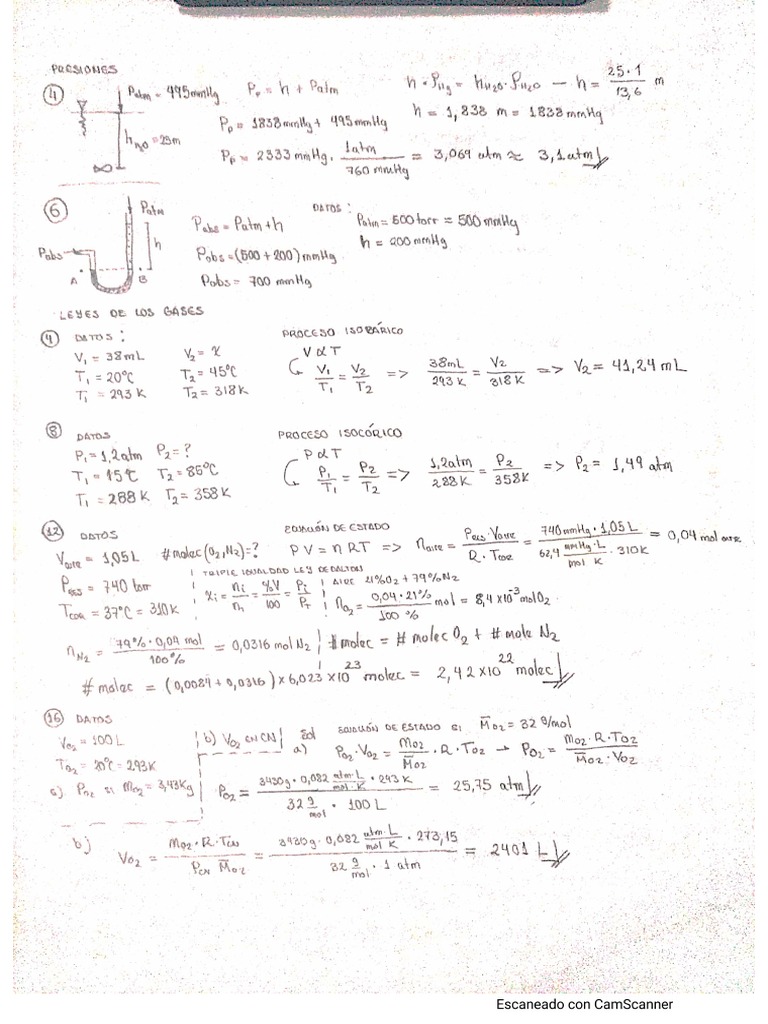 PRESIONES
④ Patm = 495mmHg P_P = h + Patm h·ρ_Hg = h_H2O·ρ_H2O — h = 25·1/13,6 m
h_H2O = 25m P_P = 1838 mmHg + 495 mmHg h = 1,838 m = 1838 mmHg
P_P = 2333 mmHg · 1atm/760 mmHg = 3,069 atm ≈ 3,1 atm
⑥ Patm Pabs = Patm + h DATOS: Patm = 500 torr = 500 mmHg
Pabs h A B Pabs = (500 + 200) mmHg h = 200 mmHg
Pabs = 700 mmHg
LEYES DE LOS GASES
④ DATOS: PROCESO ISOBÁRICO
V₁ = 38mL V₂ = x V α T
T₁ = 20°C T₂ = 45°C V₁/T₁ = V₂/T₂ => 38mL/293 K = V₂/318 K => V₂ = 41,24 mL
T₁ = 293 K T₂ = 318 K
⑧ DATOS PROCESO ISOCÓRICO
P₁ = 1,2atm P₂ = ? P α T
T₁ = 15°C T₂ = 85°C P₁/T₁ = P₂/T₂ => 1,2atm/288 K = P₂/358K => P₂ = 1,49 atm
T₁ = 288 K T₂ = 358 K
⑫ DATOS ECUACIÓN DE ESTADO
Vaire = 1,05L #molec(O₂,N₂)=? PV = nRT => naire = Pees·Vaire/R·Tcor = 740mmHg·1,05L/62,4 mmHg·L/mol K · 310K = 0,04 mol aire
Pees = 740 torr TRIPLE IGUALDAD LEY DE DALTON AIRE 21%O₂ + 79%N₂
Tcor = 37°C = 310K Xi = ni/nt = %V/100 = Pi/PT n_O₂ = 0,04·21%/100% mol = 8,4 x10⁻³ mol O₂
n_N₂ = 79%·0,04 mol/100% = 0,0316 mol N₂ # molec = # molec O₂ + # mole N₂
# molec = (0,0084 + 0,0316) x 6,023 x10²³ molec = 2,42 x10²² molec
⑯ DATOS
V_O2 = 100 L b) V_O2 EN CN Sol ECUACIÓN DE ESTADO si M̄_O2 = 32 g/mol
T_O2 = 20°C = 293K a) P_O2·V_O2 = m_O2/M̄_O2 · R·T_O2 → P_O2 = m_O2·R·T_O2/M̄_O2·V_O2
a) P_O2 si m_O2 = 3,43Kg P_O2 = 3430g·0,082 atm·L/mol·K · 293 K/32 g/mol · 100 L = 25,75 atm
b) V_O2 = m_O2·R·T_CN/P_CN M̄_O2 = 3430g·0,082 atm·L/mol K · 273,15/32 g/mol · 1 atm = 2401 L
Escaneado con CamScanner